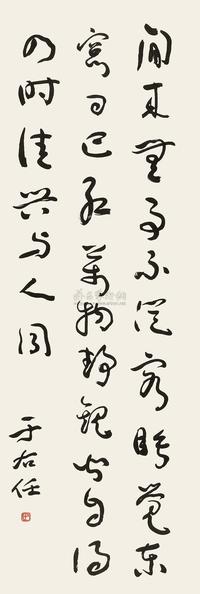 閒來無事不從容睡覺東
窗日已紅萬物靜觀皆自得
四時佳興與人同
于右任